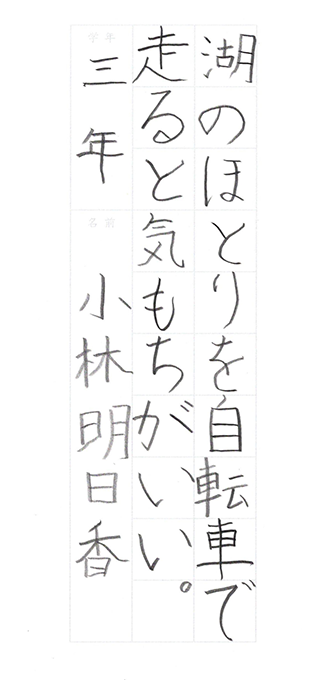 湖のほとりを自転車で
走ると気もちがいい。
学年
三年
名前
小林明日香